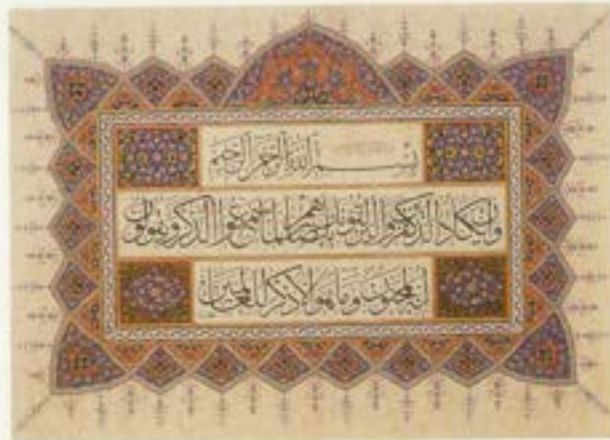 بسم الله الرحمن الرحيم
وان يكاد الذين كفروا ليزلقونك بابصارهم لما سمعوا الذكر ويقولون
انه لمجنون وما هو الا ذكر للعالمين